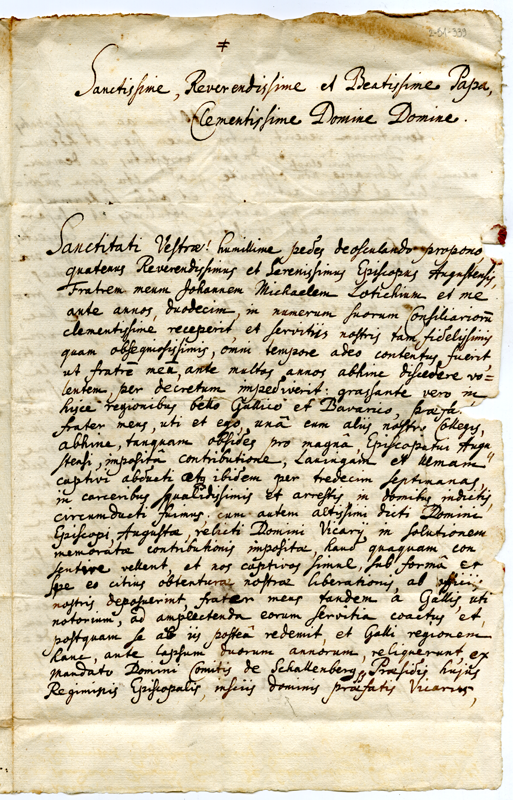 2-61-339
Sanctissime, Reverendissime et Beatissime Papa,
Clementissime Domine Domine.
Sanctitati Vestræ! humillime pedes deosculando propono,
quatenus Reverendissimus et Serenissimus Episcopus Augustensis,
Fratrem meum Johannem Michaelem Lotichium et me
ante annos, duodecim, in numerum suorum Consiliariorū
clementissime receperit et servitiis nostris tam fidelissimis
quam obsequiosissimis, omni tempore adeo contentus fuerit
ut fratrē meū, ante multos annos abhinc discedere vo=
lentem per decretum impediverit: grassante vero in
hisce regionibus bello Gallico et Bavarico, præfa.
frater meus, uti et ego, unà cum aliis nostris Collegis,
abhinc, tanquam obsides pro magnâ Episcopatui Augu
stensi, impositâ contributione, Lauingam et Ulmam
captivi abducti atq ibidem per tredecim septimanas,
in carceribus squalidissimis et arrestis in domibus indictis
circumducti fuimus. cum autem altissimi dicti Domini
Episcopi Augustæ relicti Domini Vicarij in solutionem
memoratæ contributionis impositæ haud quaquam con
sentire vellent, et nos captivos simul, sub formâ et
spe eo citius obtentura nostræ liberationis, ab officiis
nostris, deposuerint, frater meus tandem à Gallis, uti
notorium, ad amplectenda eorum servitia coactus et,
postquam se ab iis postea redemit, et Galli regionem
hanc, ante lapsum duorum annorum, reliquerunt ex
mandato Domini Comitis de Schallenberg, Præsidis hujus
Regiminis Episcopalis, insciis dominis præfatis Vicariis,